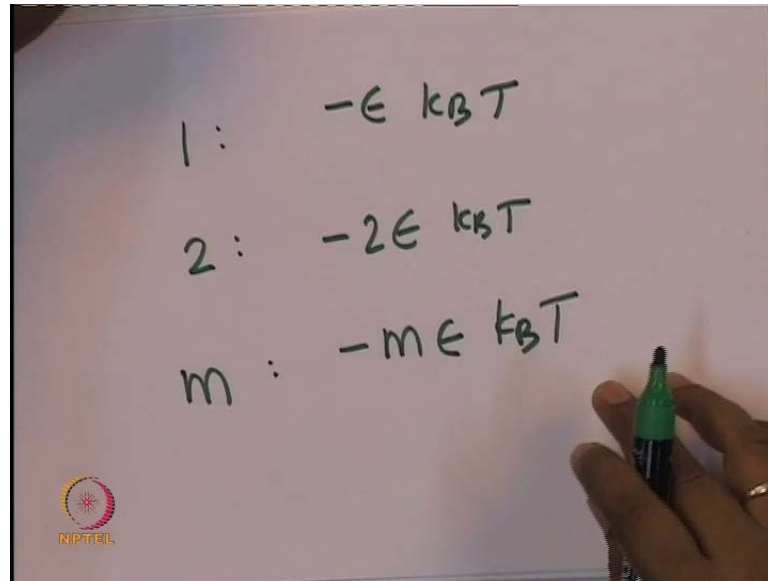 1: -ϵ kBT
2: -2ϵ kBT
m: -mϵ kBT
NPTEL